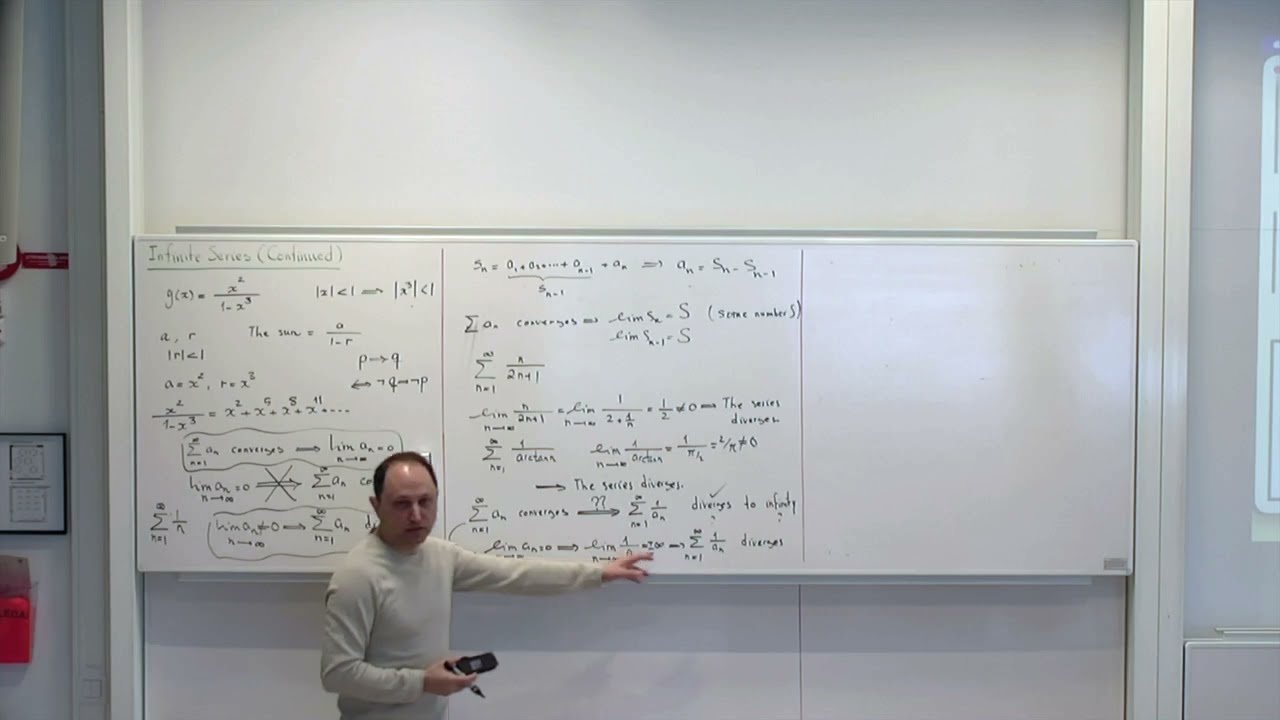 Infinite Series (Continued)
g(x) = x²/(1-x³)   |x|<1 ⟹ |x³|<1
a, r   The sum = a/(1-r)
|r|<1
p→q
⟷ ¬q→¬p
a = x², r = x³
x²/(1-x³) = x² + x⁵ + x⁸ + x¹¹ + ....
∑_{n=1}^∞ aₙ converges ⟹ lim_{n→∞} aₙ = 0
lim_{n→∞} aₙ = 0 ⟹ ∑_{n=1}^∞ aₙ
∑_{n=1}^∞ 1/n   lim_{n→∞} aₙ ≠ 0 ⟹ ∑_{n=1}^∞ aₙ
Sₙ = a₁ + a₂ + ... + aₙ₋₁ + aₙ ⟹ aₙ = Sₙ - Sₙ₋₁
Sₙ₋₁
∑ aₙ converges ⟹ lim Sₙ = S (some number S)
lim Sₙ₋₁ = S
∑_{n=1}^∞ n/(2n+1)
lim_{n→∞} n/(2n+1) = lim_{n→∞} 1/(2 + 1/n) = 1/2 ≠ 0 ⟹ The series
diverges.
∑_{n=1}^∞ 1/arctan n   lim_{n→∞} 1/arctan n = 1/(π/2) = 2/π ≠ 0
⟹ The series diverges.
∑_{n=1}^∞ aₙ converges ⟹?? ∑_{n=1}^∞ 1/aₙ diverges ✓ to infinity ?
lim aₙ = 0 ⟹ lim 1/aₙ = ±∞ ⟹ ∑_{n=1}^∞ 1/aₙ diverges